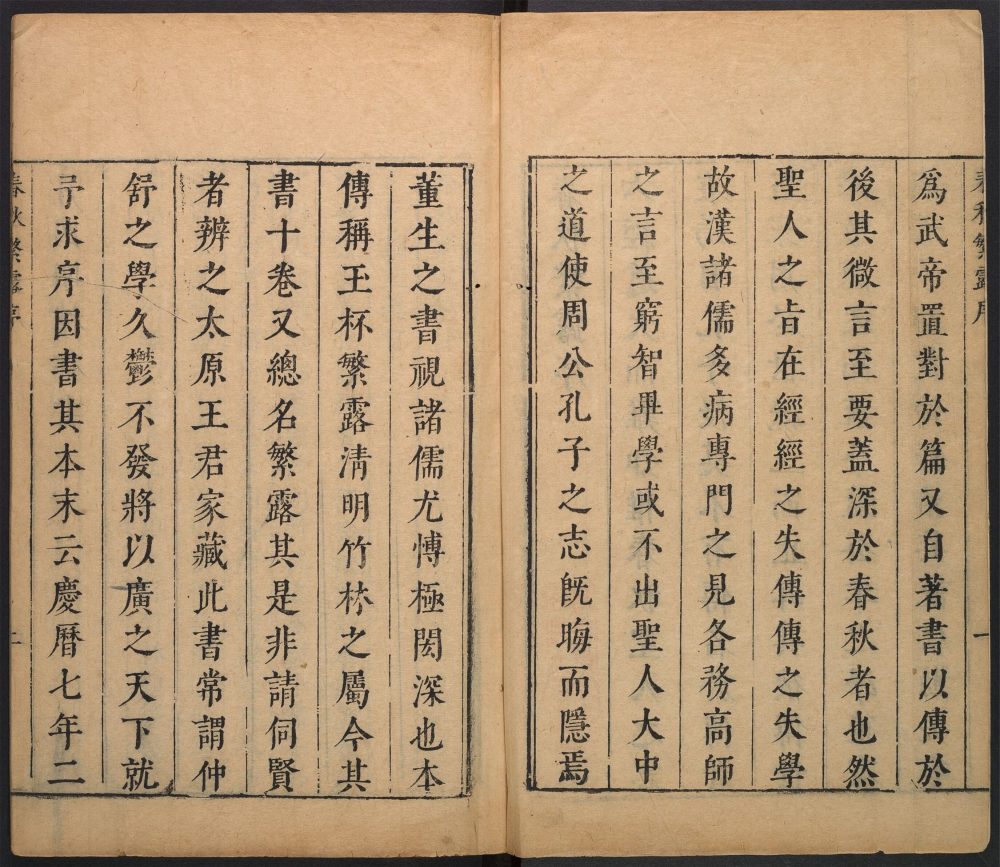 春秋繁露序
一
爲武帝置對於篇又自著書以傳於
後其微言至要蓋深於春秋者也然
聖人之旨在經經之失傳傳之失學
故漢諸儒多病專門之見各務高師
之言至窮智畢學或不出聖人大中
之道使周公孔子之志旣晦而隱焉
董生之書視諸儒尤博極閎深也本
傳稱玉杯繁露清明竹林之屬今其
書十卷又總名繁露其是非請伺賢
者辨之太原王君家藏此書常謂仲
舒之學久鬱不發將以廣之天下就
予求序因書其本末云慶曆七年二
春秋繁露序